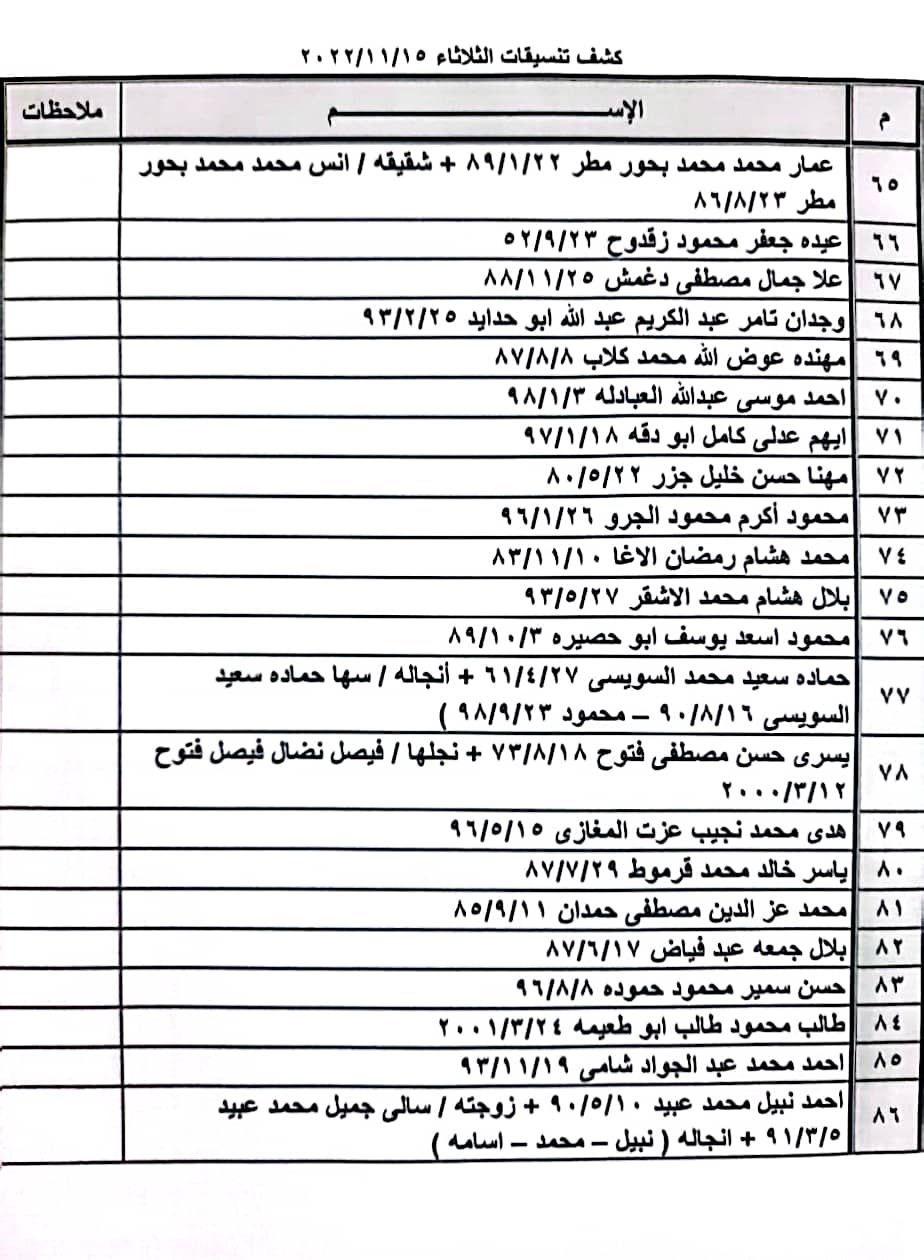 كشف تنسيقات الثلاثاء ٢٠٢٢/١١/١٥
م الإســـــــــم ملاحظات
٦٥ عمار محمد محمد بحور مطر ٨٩/١/٢٢ + شقيقه / انس محمد محمد بحور
مطر ٨٦/٨/٢٣
٦٦ عيده جعفر محمود زقدوح ٥٢/٩/٢٣
٦٧ علا جمال مصطفى دغمش ٨٨/١١/٢٥
٦٨ وجدان تامر عبد الكريم عبد الله ابو حدايد ٩٣/٢/٢٥
٦٩ مهنده عوض الله محمد كلاب ٨٧/٨/٨
٧٠ احمد موسى عبدالله العبادله ٩٨/١/٣
٧١ ايهم عدلى كامل ابو دقه ٩٧/١/١٨
٧٢ مهنا حسن خليل جزر ٨٠/٥/٢٢
٧٣ محمود أكرم محمود الجرو ٩٦/١/٢٦
٧٤ محمد هشام رمضان الاغا ٨٣/١١/١٠
٧٥ بلال هشام محمد الاشقر ٩٣/٥/٢٧
٧٦ محمود اسعد يوسف ابو حصيره ٨٩/١٠/٣
٧٧ حماده سعيد محمد السويسى ٦١/٤/٢٧ + أنجاله / سها حماده سعيد
السويسى ٩٠/٨/١٦ – محمود ٩٨/٩/٢٣ )
٧٨ يسرى حسن مصطفى فتوح ٧٣/٨/١٨ + نجلها / فيصل نضال فيصل فتوح
٢٠٠٠/٣/١٢
٧٩ هدى محمد نجيب عزت المغازى ٩٦/٥/١٥
٨٠ ياسر خالد محمد قرموط ٨٧/٧/٢٩
٨١ محمد عز الدين مصطفى حمدان ٨٥/٩/١١
٨٢ بلال جمعه عبد فياض ٨٧/٦/١٧
٨٣ حسن سمير محمود حموده ٩٦/٨/٨
٨٤ طالب محمود طالب ابو طعيمه ٢٠٠١/٣/٢٤
٨٥ احمد محمد عبد الجواد شامى ٩٣/١١/١٩
٨٦ احمد نبيل محمد عبيد ٩٠/٥/١٠ + زوجته / سالى جميل محمد عبيد
٩١/٣/٥ + انجاله ( نبيل – محمد – اسامه )